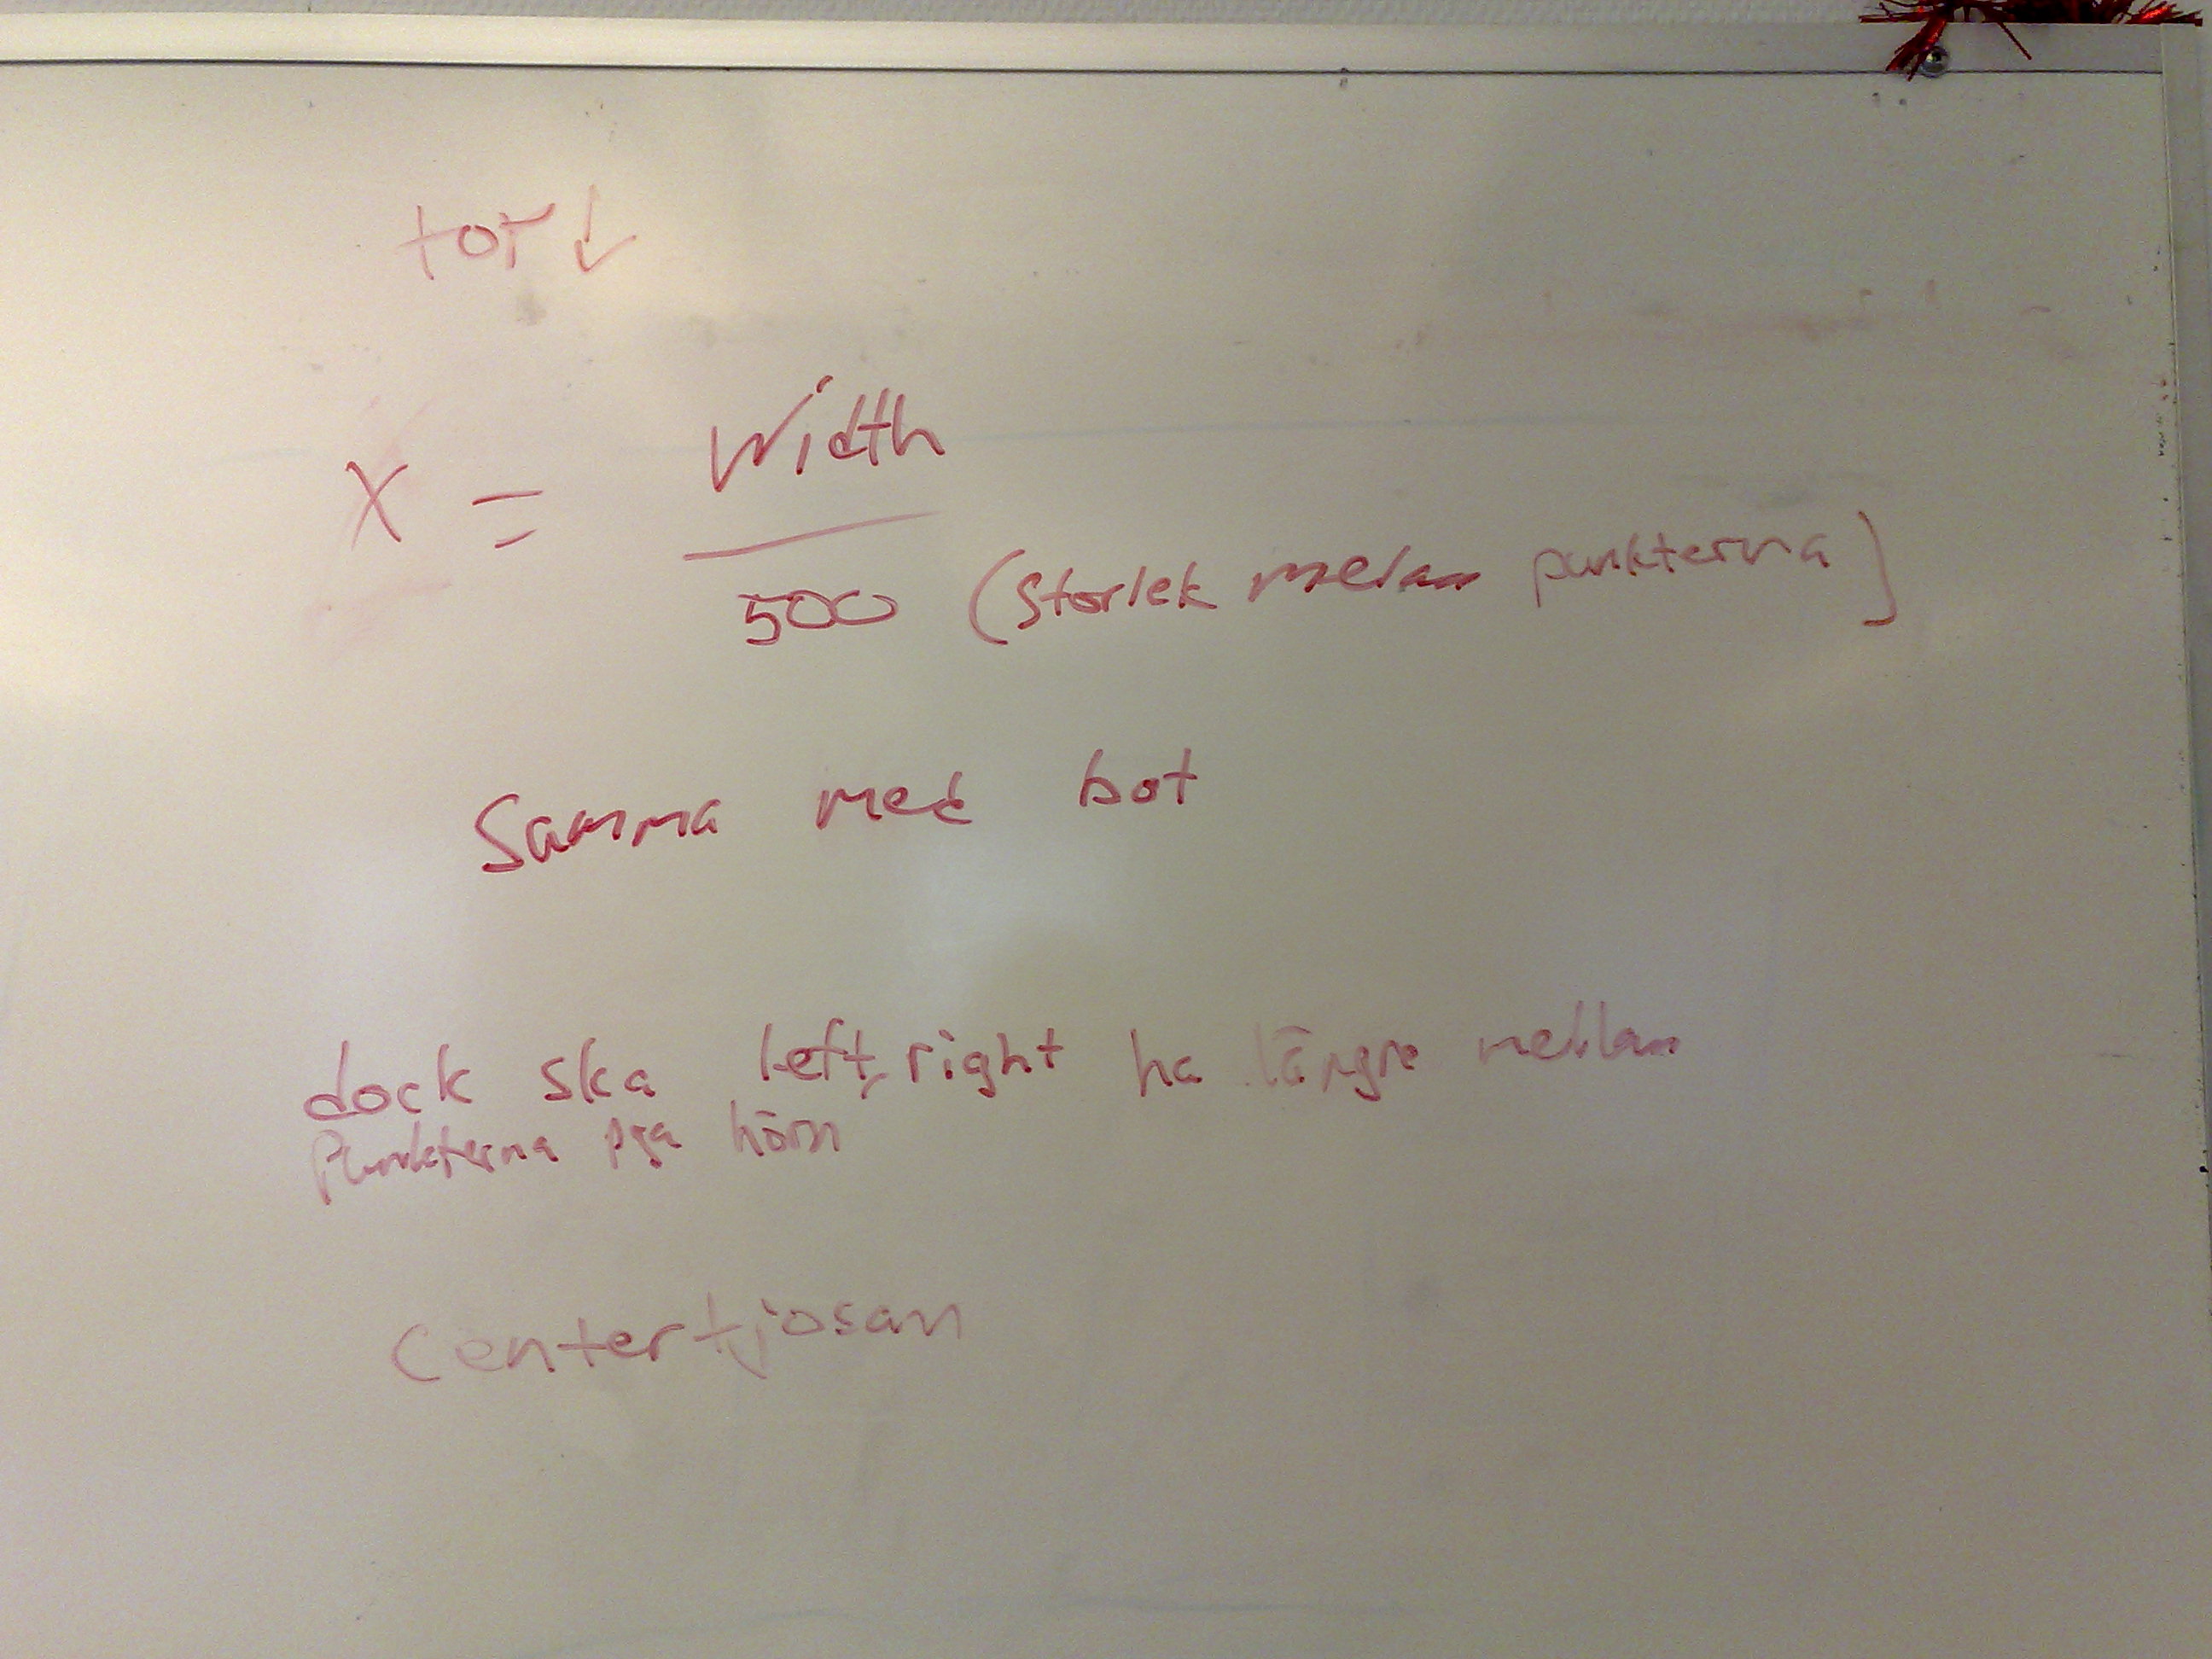 top ↓
X = Width
500 (Storlek melan punkterna)
Samma med bot
dock ska left, right ha längre mellan
Punkterna pga hörn
Centertjosan